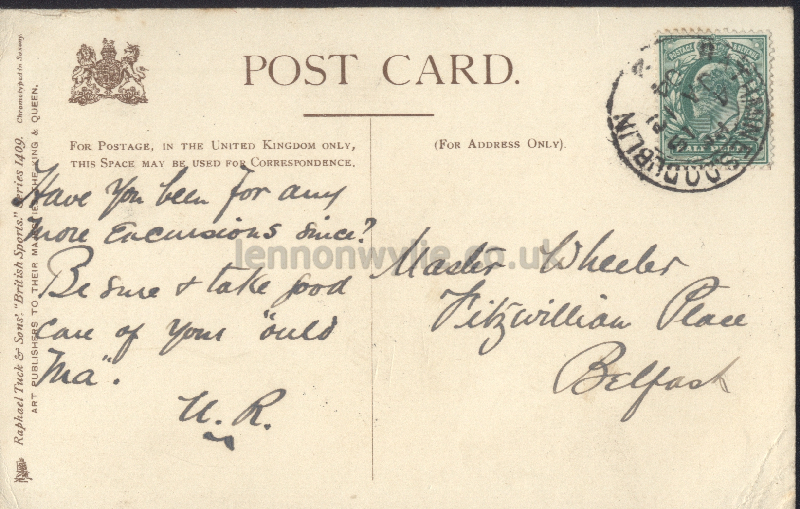 POST CARD.
FOR POSTAGE, IN THE UNITED KINGDOM ONLY,
THIS SPACE MAY BE USED FOR CORRESPONDENCE.
(FOR ADDRESS ONLY).
Have you been for any
more excursions since?
Be sure & take good
care of your "ould
Ma".
U. R.
Master Wheeler
Fitzwilliam Place
Belfast
Raphael Tuck & Sons' "British Sports." Series 1409.
Chromotyped in Saxony.
ART PUBLISHERS TO THEIR MAJESTIES THE KING & QUEEN.
lennonwylie.co.uk
POSTAGE
HALF PENNY
DUBLIN